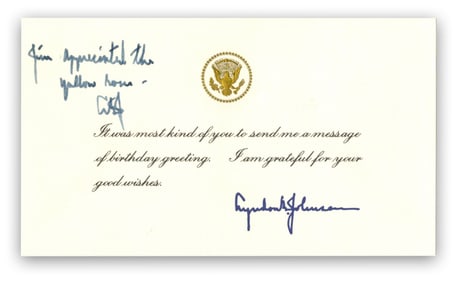 Jim appreciated the
yellow rose -
LBJ
It was most kind of you to send me a message
of birthday greeting. I am grateful for your
good wishes.
Lyndon B. Johnson